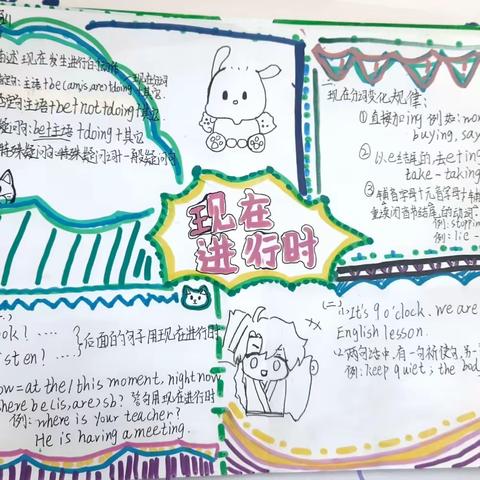 描述现在发生进行的动作
肯定句:主语+be(am,is,are)+doing+其它
否定句:主语+be+not+doing+其它
疑问句:be+主语+doing+其它
特殊疑问句:特殊疑问词+一般疑问句
现在分词变化规律:
①直接加ing 例如:
buying, say
②以e结尾的,去e+ing
take-taking
③辅音字母+元音字母+辅
重读闭音节结尾的动词
例:stopping
例:lie-
现在
进行时
ook! ····
isten! ····
后面的句子用现在进行时
now=at the/this moment, right now
where be(is,are)sb? 答句用现在进行时
例:where is your teacher?
He is having a meeting.
(二)(1)It's 9 o'clock. we are
English lesson.
(2)两句话中,有一句祈使句,另一
例:keep quiet; the